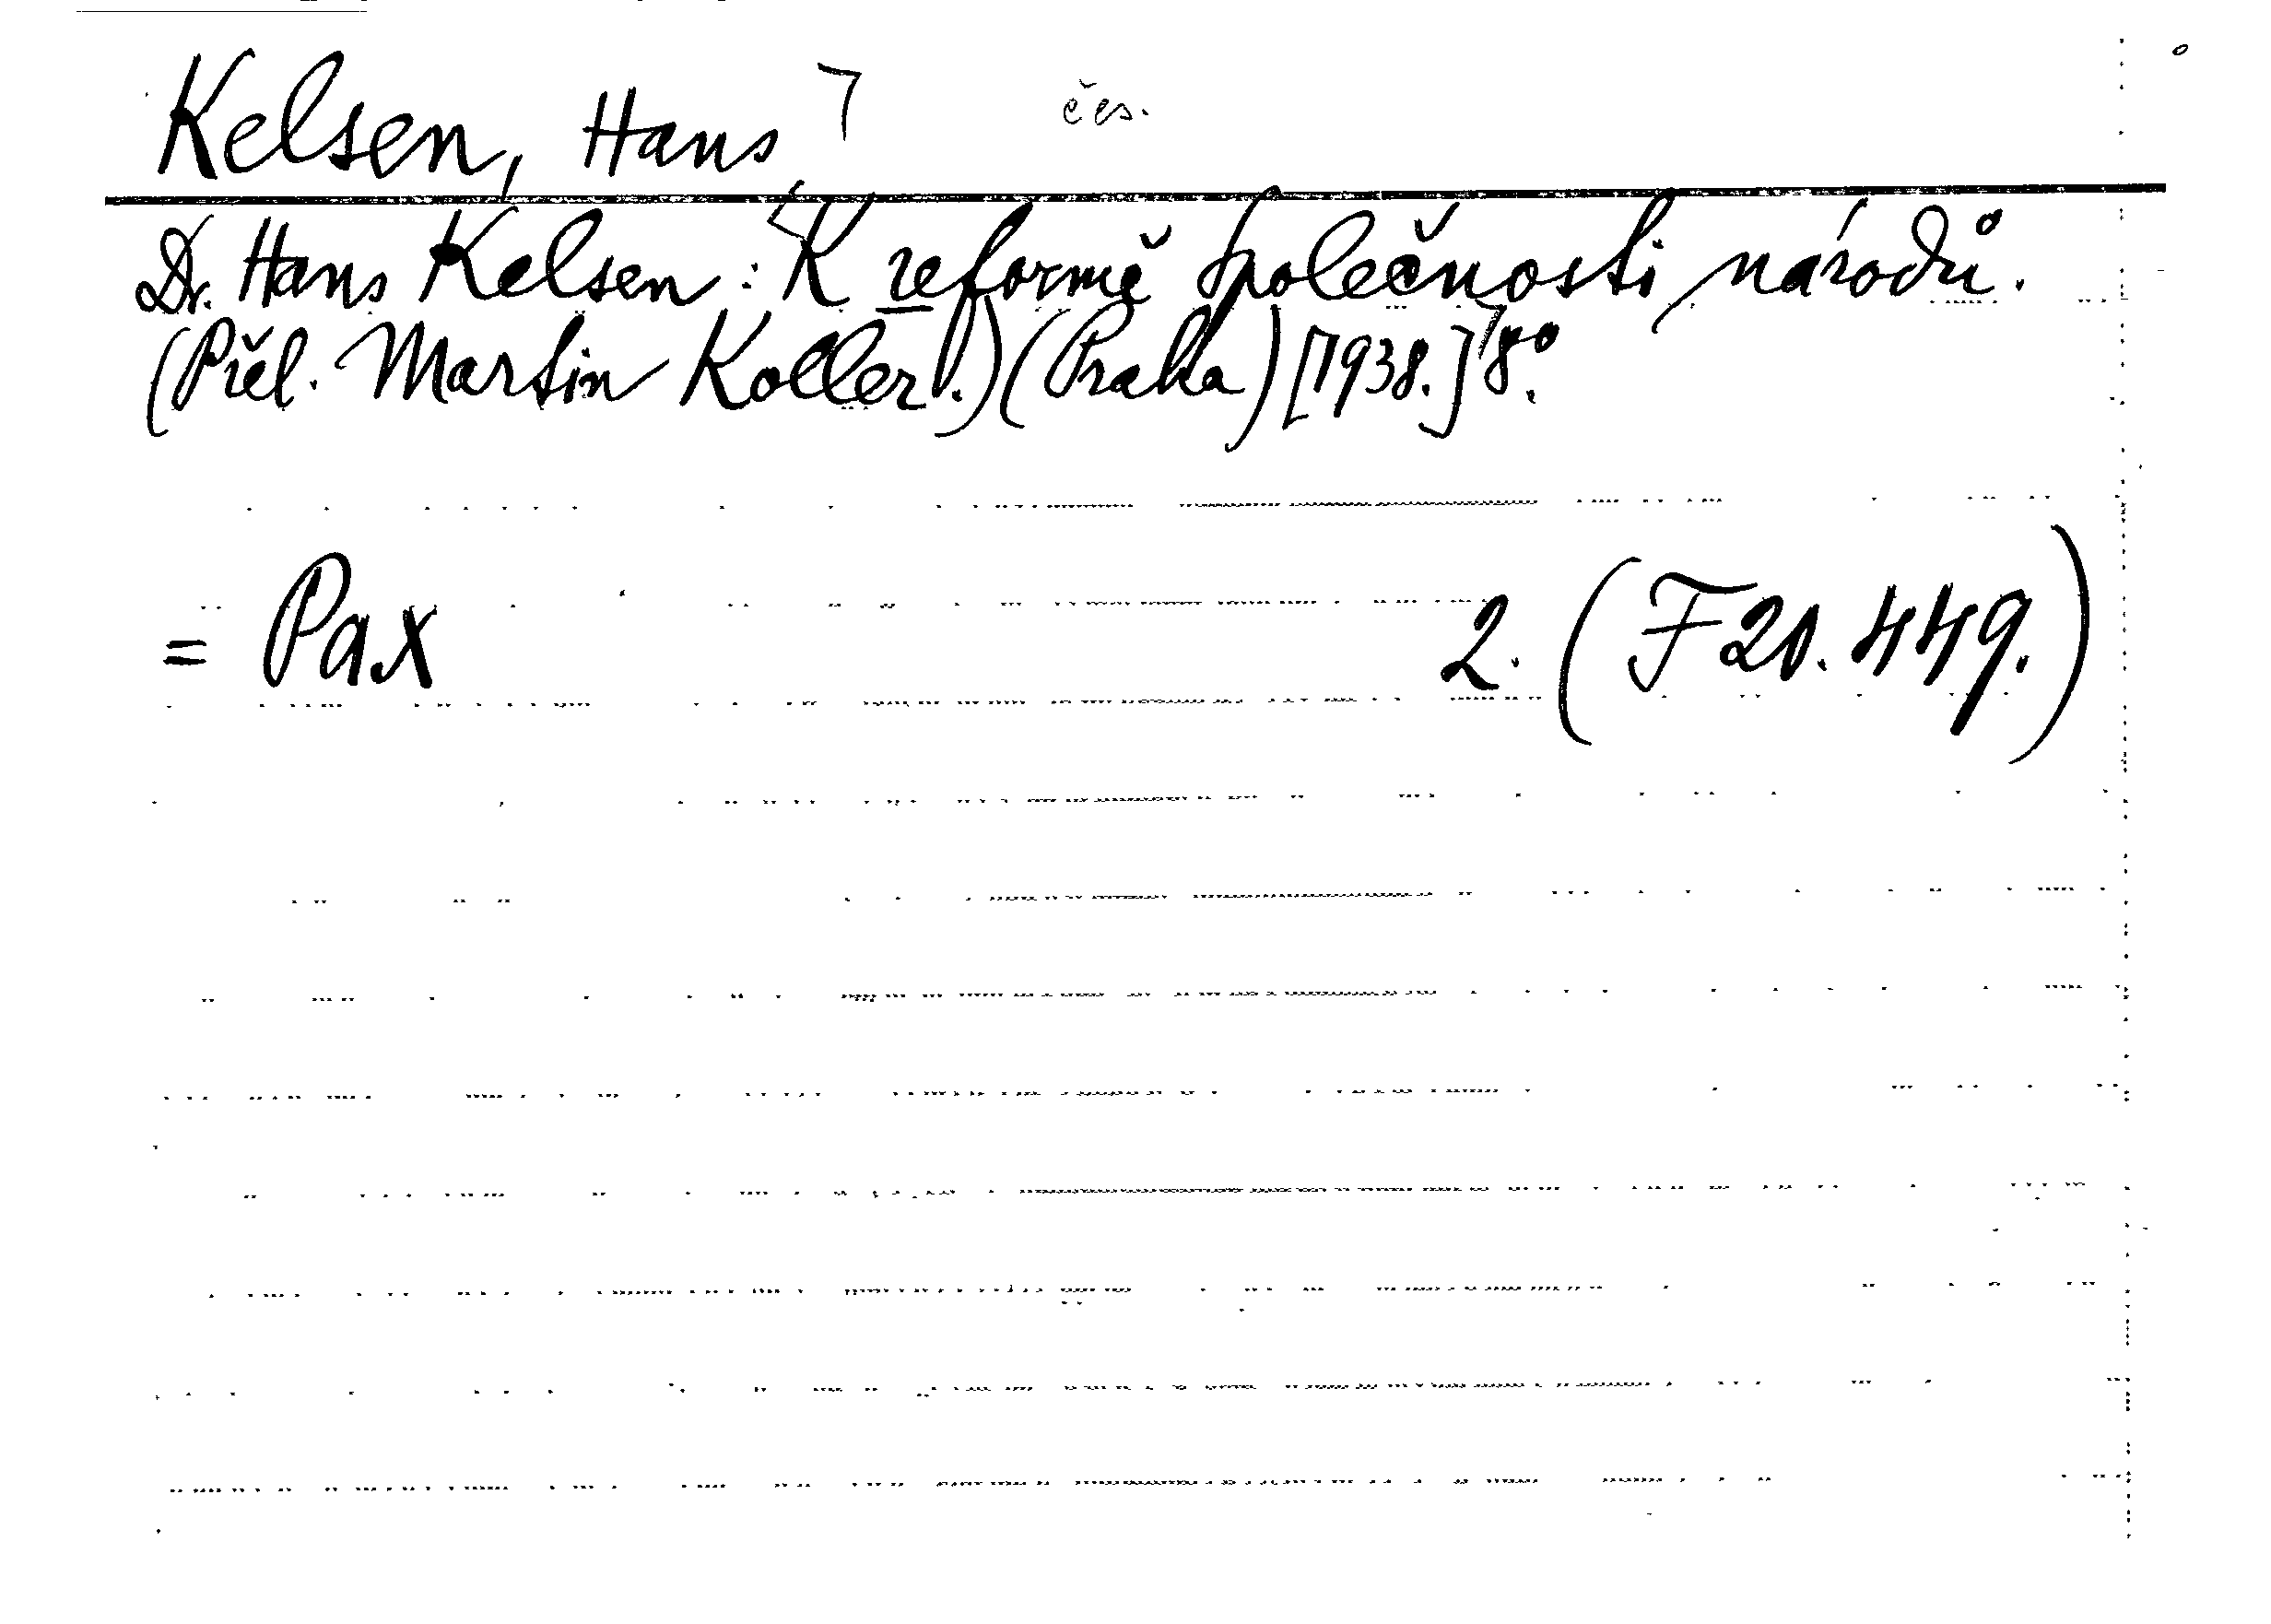 Kelsen, Hans čes.
Dr. Hans Kelsen: K reformě Společnosti národů.
(Přel. Martin Koller.) (Praha) [1938.] 8°.
= Pax 2. (F 20.449.)